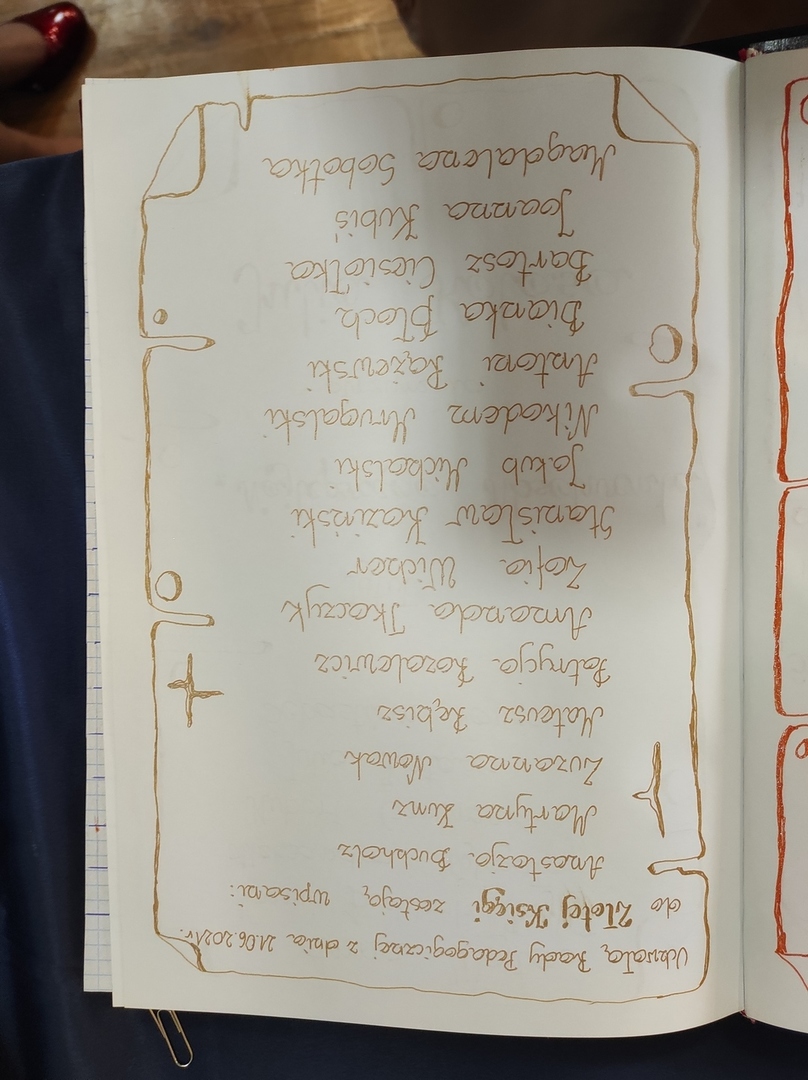 Uchwałą Rady Pedagogicznej z dnia 21.06.2021r.
do Złotej Księgi zostają wpisani:
Anastazja Buchholz
Martyna Kunz
Zuzanna Nowak
Mateusz Rębisz
Patrycja Rozalewicz
Amanda Tkaczyk
Zofia Wicher
Stanisław Kaziński
Jakub Michalski
Nikodem Mrugalski
Antoni Rążewski
Bianka Błoch
Bartosz Ciesiółka
Joanna Kubiś
Magdalena Sobotka